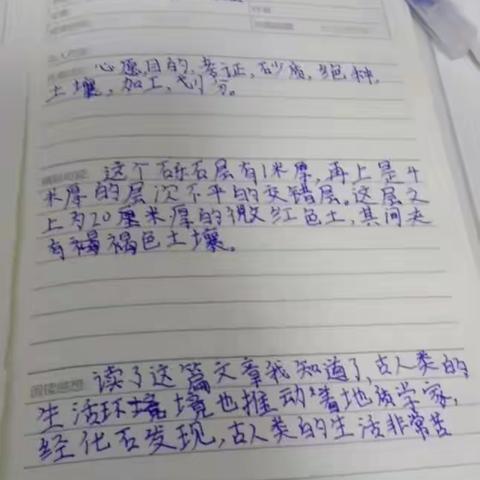 心愿,目的,考证,砂质,绝种,
土壤,加工,划分。
这个砾石层有1米厚,再上是4
米厚的层次不平的交错层。这层之
上为20厘米厚的微红色土,其间夹
有褐褐色土壤。
阅读感想 读了这篇文章我知道了,古人类的
生活环境境也推动着地质学家,
经化石发现,古人类的生活非常苦